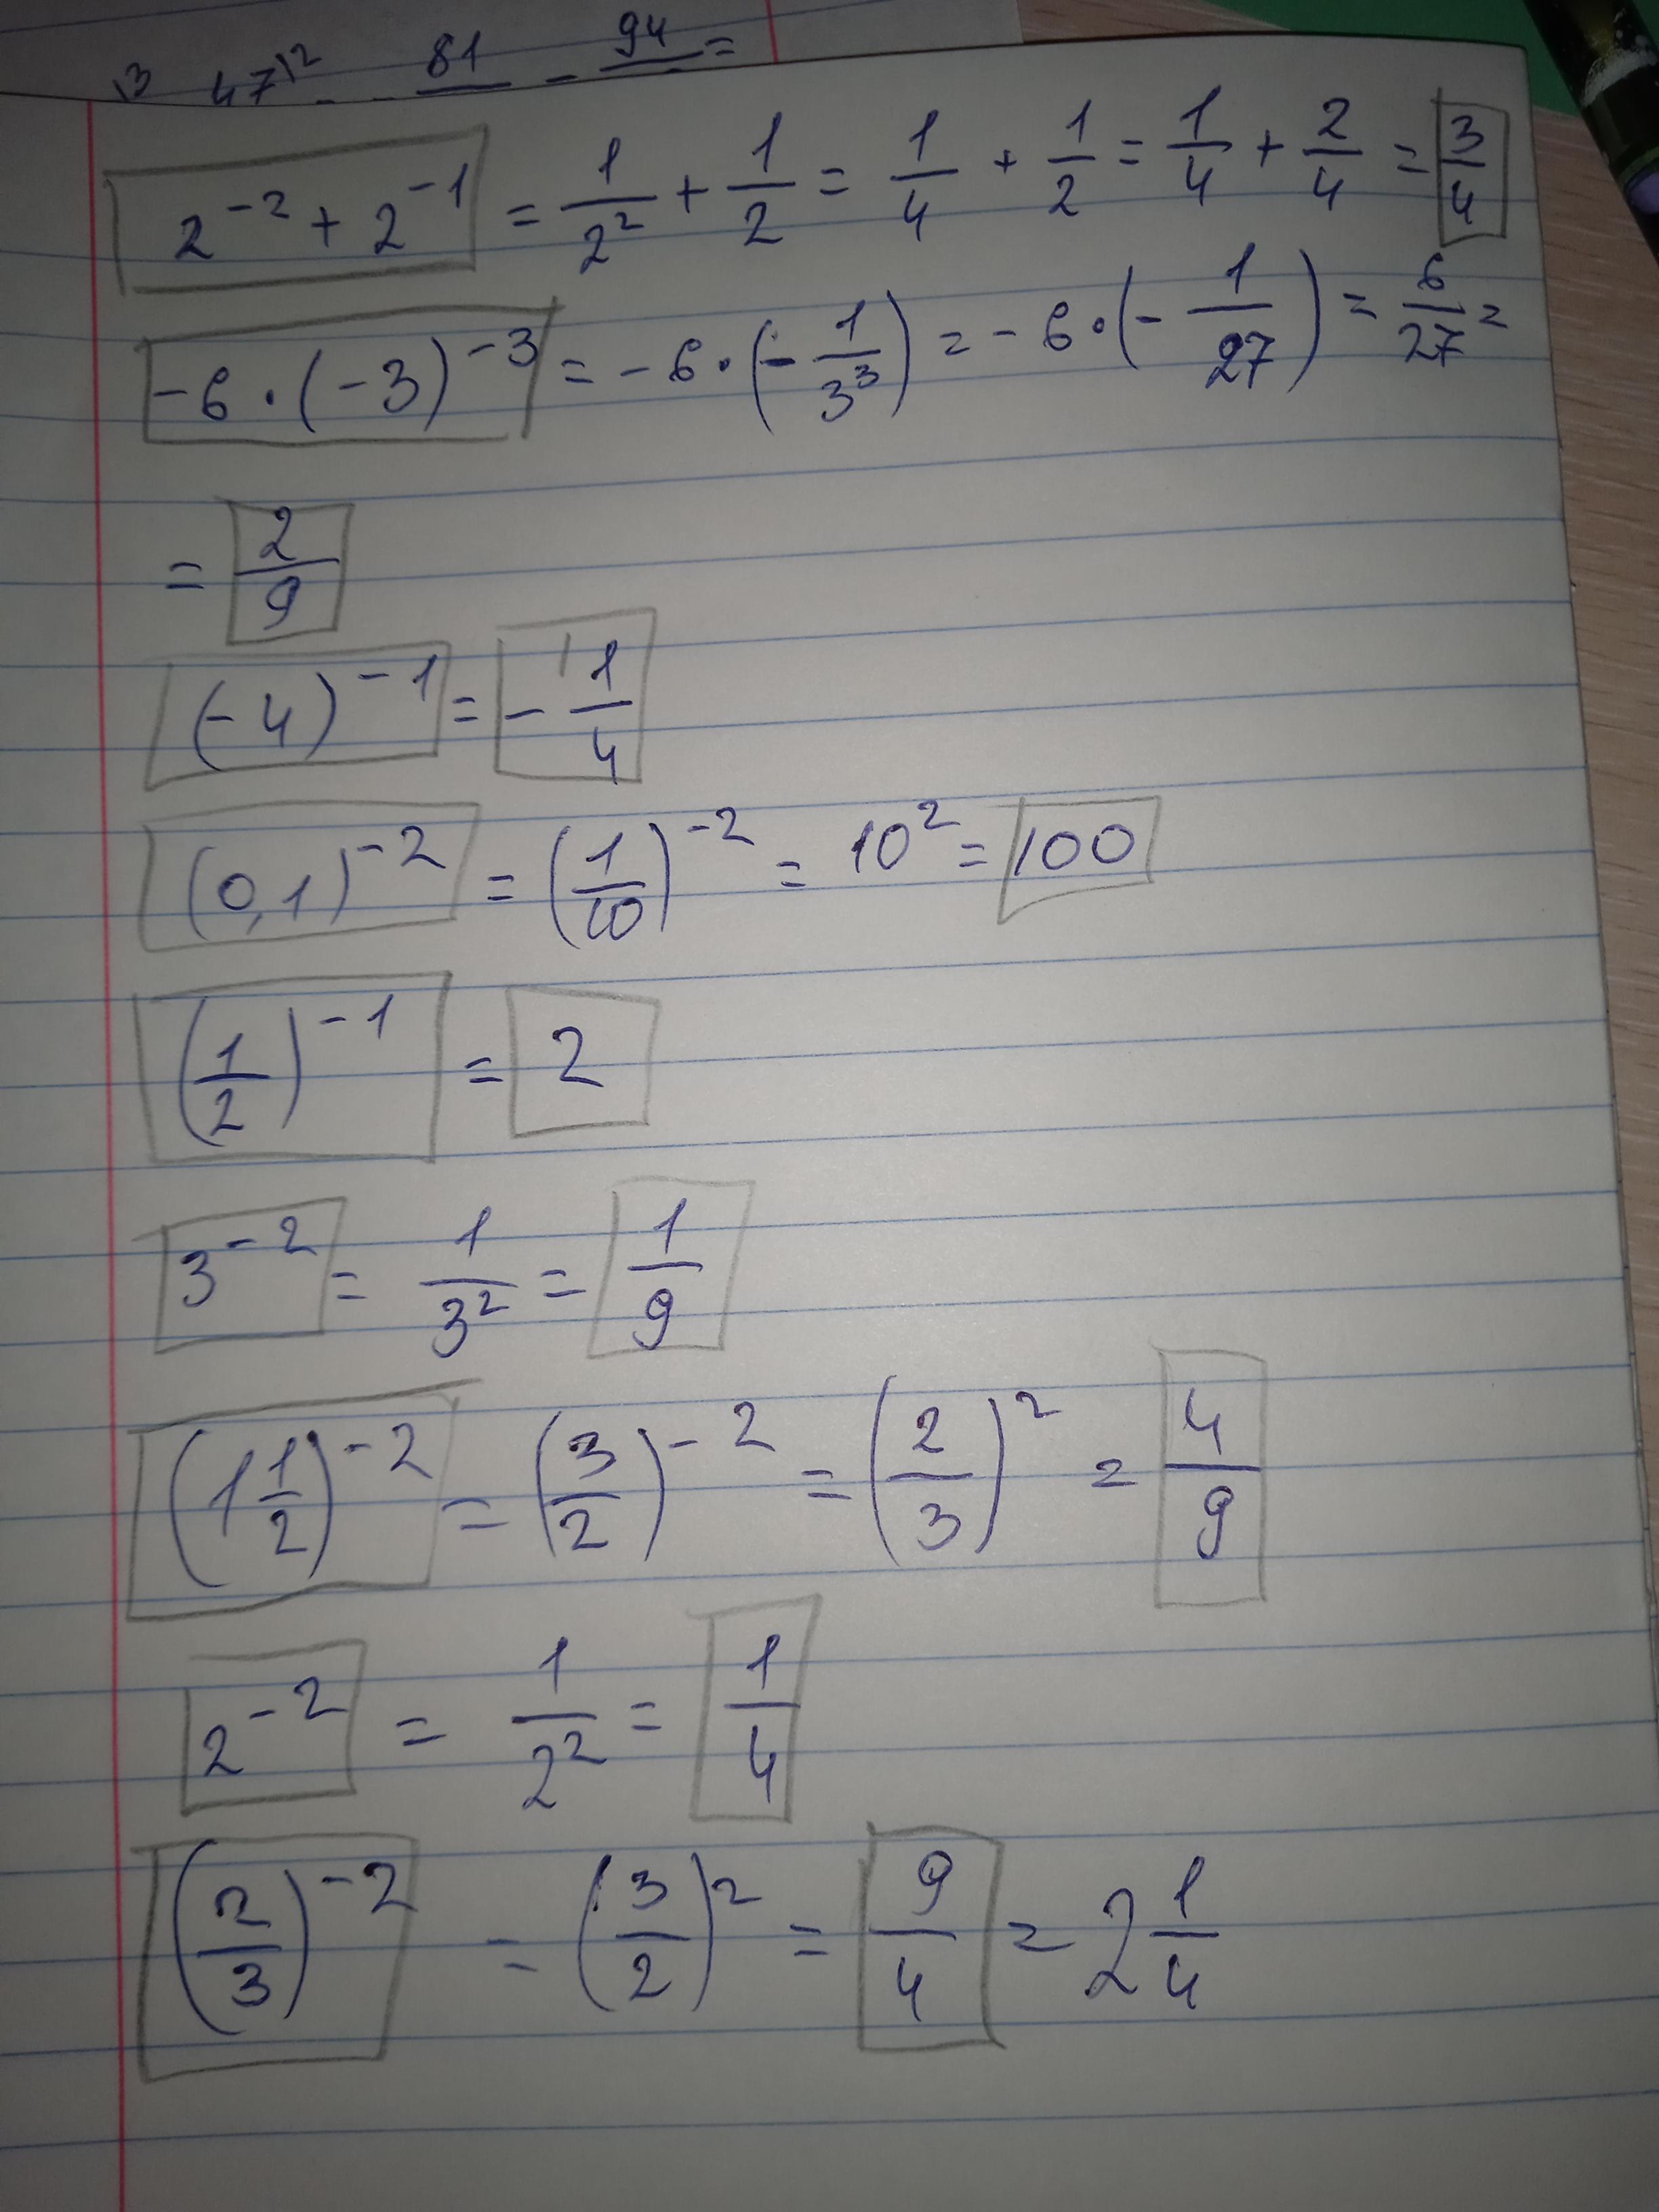 13 47¹² 81 - 94 =
2⁻² + 2⁻¹ = 1/2² + 1/2 = 1/4 + 1/2 = 1/4 + 2/4 = 3/4
-6 · (-3)⁻³ = -6 · (-1/3³) = -6 · (-1/27) = 6/27 =
= 2/9
(-4)⁻¹ = -1/4
(0,1)⁻² = (1/10)⁻² = 10² = 100
(1/2)⁻¹ = 2
3⁻² = 1/3² = 1/9
(1 1/2)⁻² = (3/2)⁻² = (2/3)² = 4/9
2⁻² = 1/2² = 1/4
(2/3)⁻² = (3/2)² = 9/4 = 2 1/4